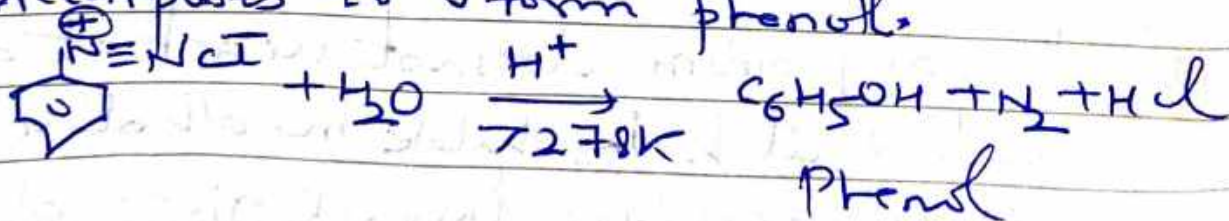 to form phenol.
⊕
N≡NCl⁻ + H₂O —H⁺→ C₆H₅OH + N₂ + HCl
>278K
Phenol